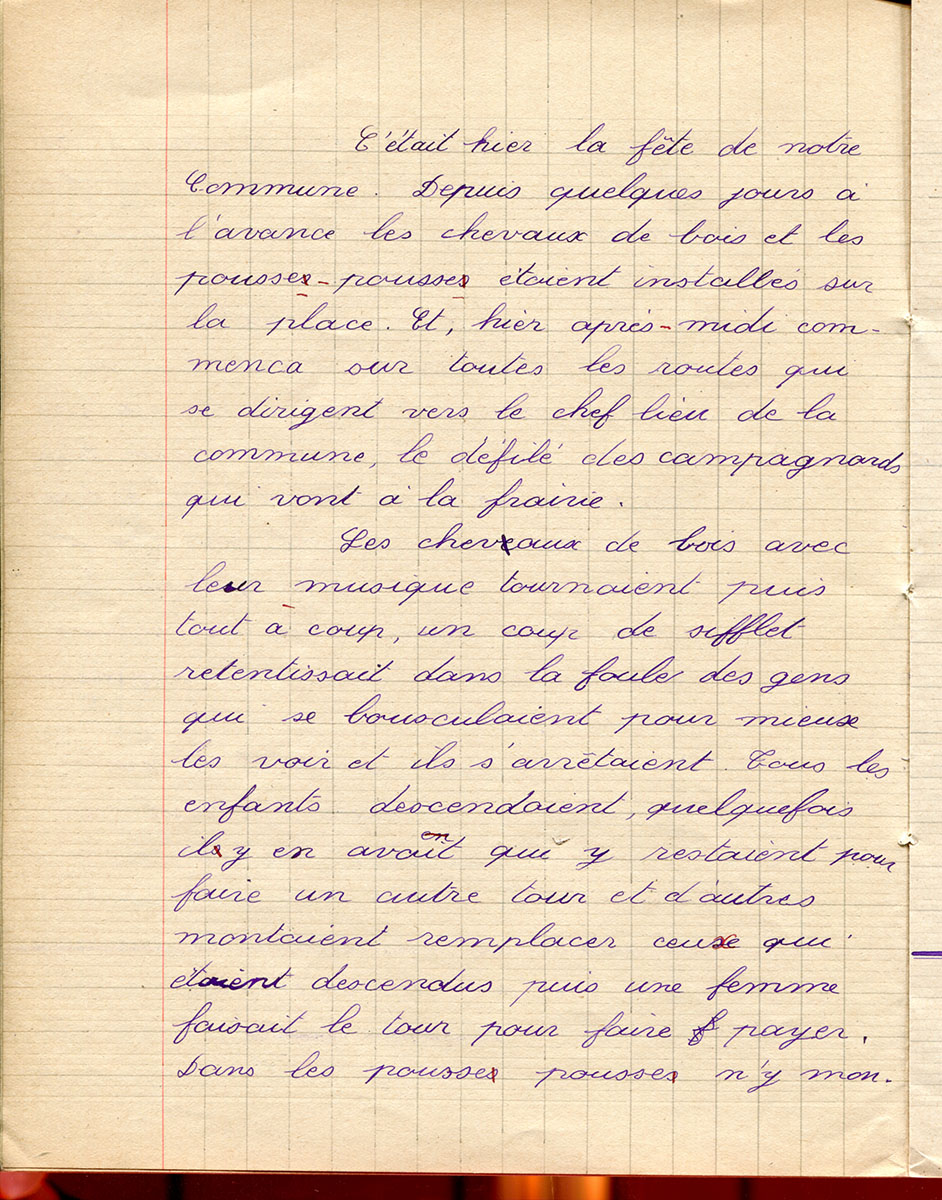 C'était hier la fête de notre
Commune. Depuis quelques jours à
l'avance les chevaux de bois et les
pousses-pousses étaient installés sur
la place. Et, hier après-midi com-
menca sur toutes les routes qui
se dirigent vers le chef lieu de la
commune, le défilé des campagnards
qui vont à la frairie.
Les chevaux de bois avec
leur musique tournaient puis
tout à coup, un coup de sifflet
retentissait dans la foule des gens
qui se bousculaient pour mieux
les voir et ils s'arrêtaient. Tous les
enfants descendaient, quelquefois
il y en avait qui y restaient pour
faire un autre tour et d'autres
montaient remplacer ceux qui
étaient descendus puis une femme
faisait le tour pour faire payer.
Dans les pousses pousses n'y mon-